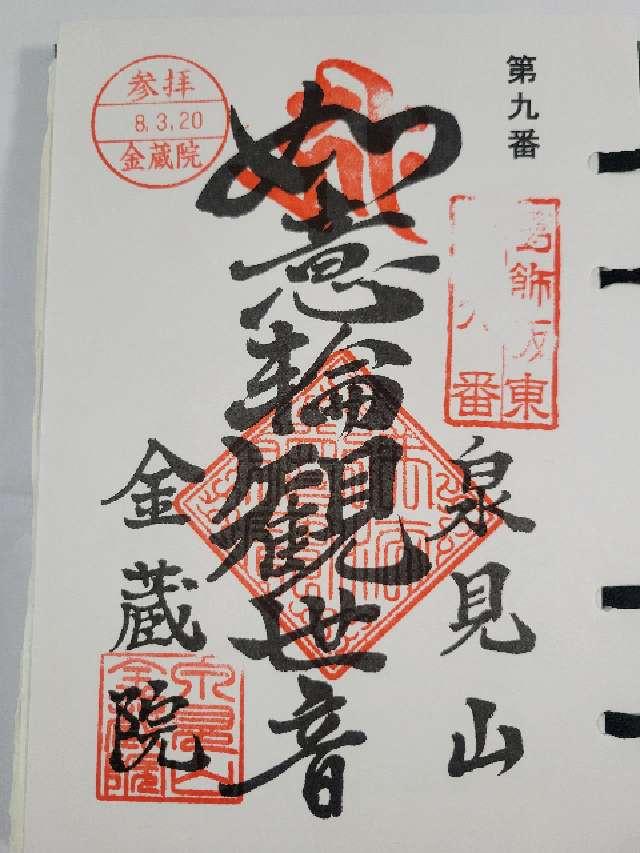 第九番
葛飾坂東
番
泉見山
如意輪觀世音
金蔵院
参拝
8.3.20
金蔵院